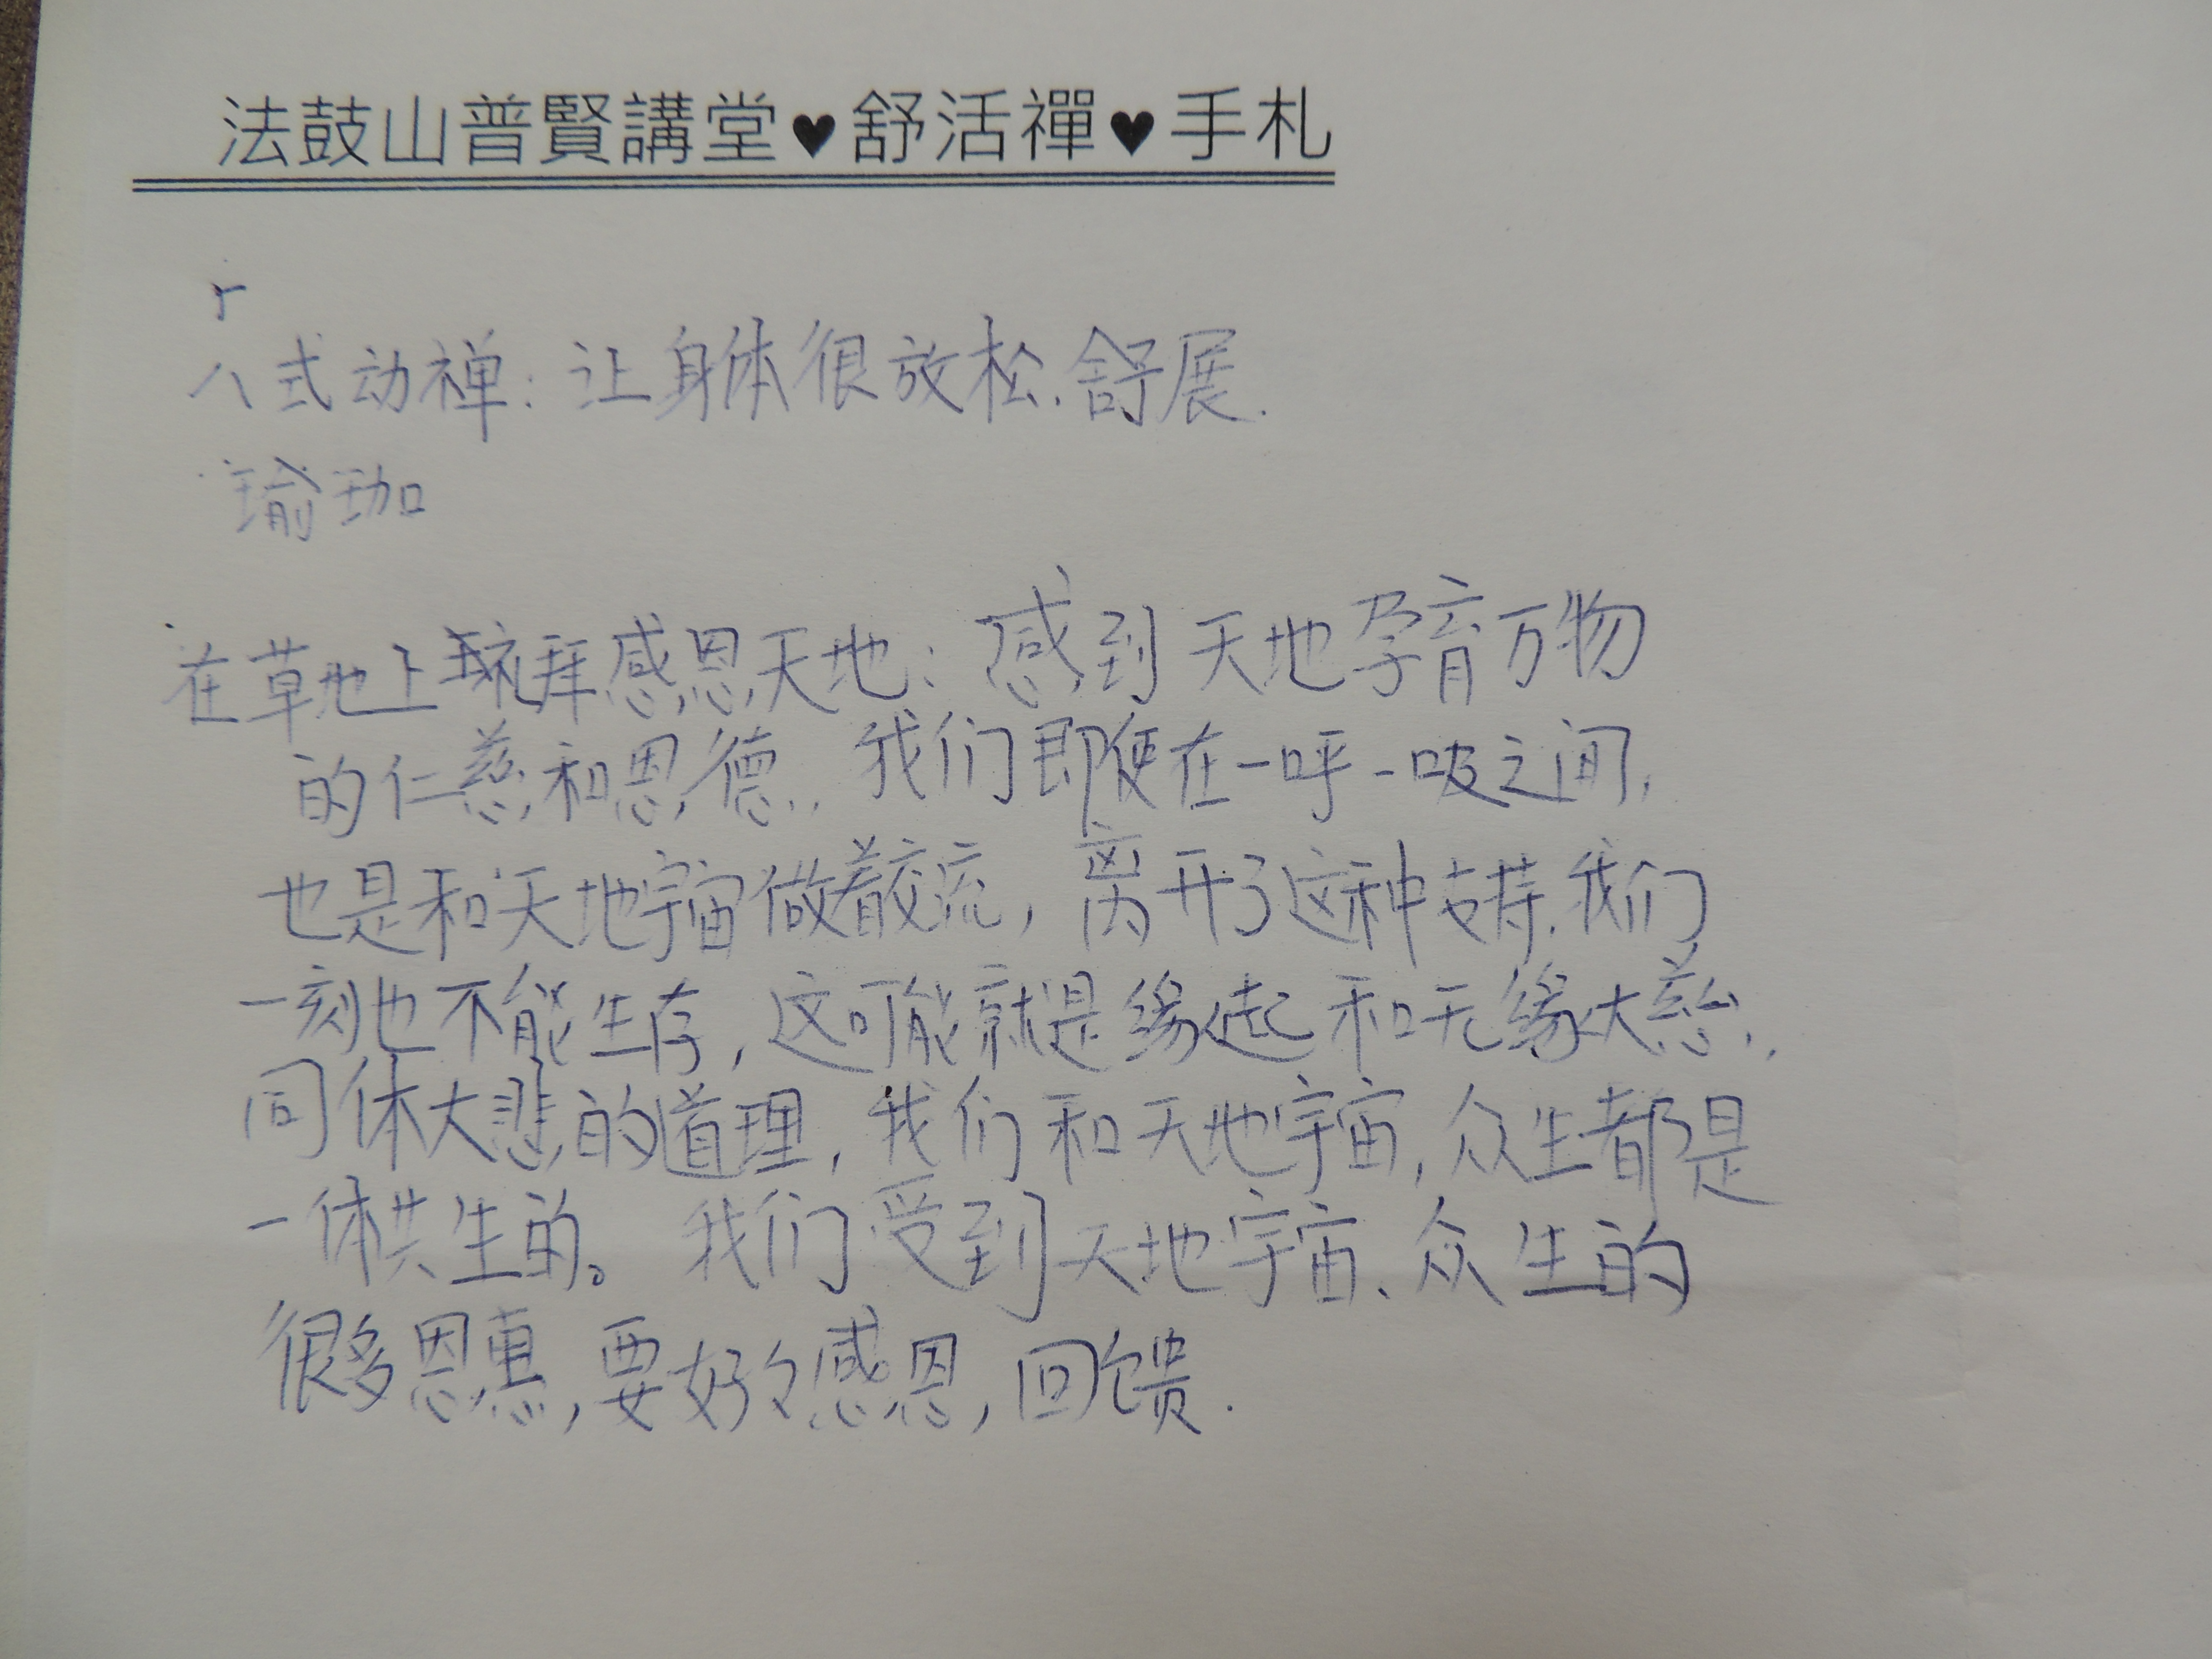 法鼓山普賢講堂♥舒活禪♥手札
八式动禅：让身体很放松.舒展.
瑜珈
在草地上 拜感恩天地：感到天地孕育万物
的仁慈和恩德.我们即使在一呼一吸之间,
也是和天地宇宙做着交流,离开了这种支持.我们
一刻也不能生存,这可能就是缘起和无缘大慈.,
同体大悲的道理,我们和天地宇宙,众生都是
一体共生的。我们受到天地宇宙、众生的
很多恩惠,要好々感恩,回馈.